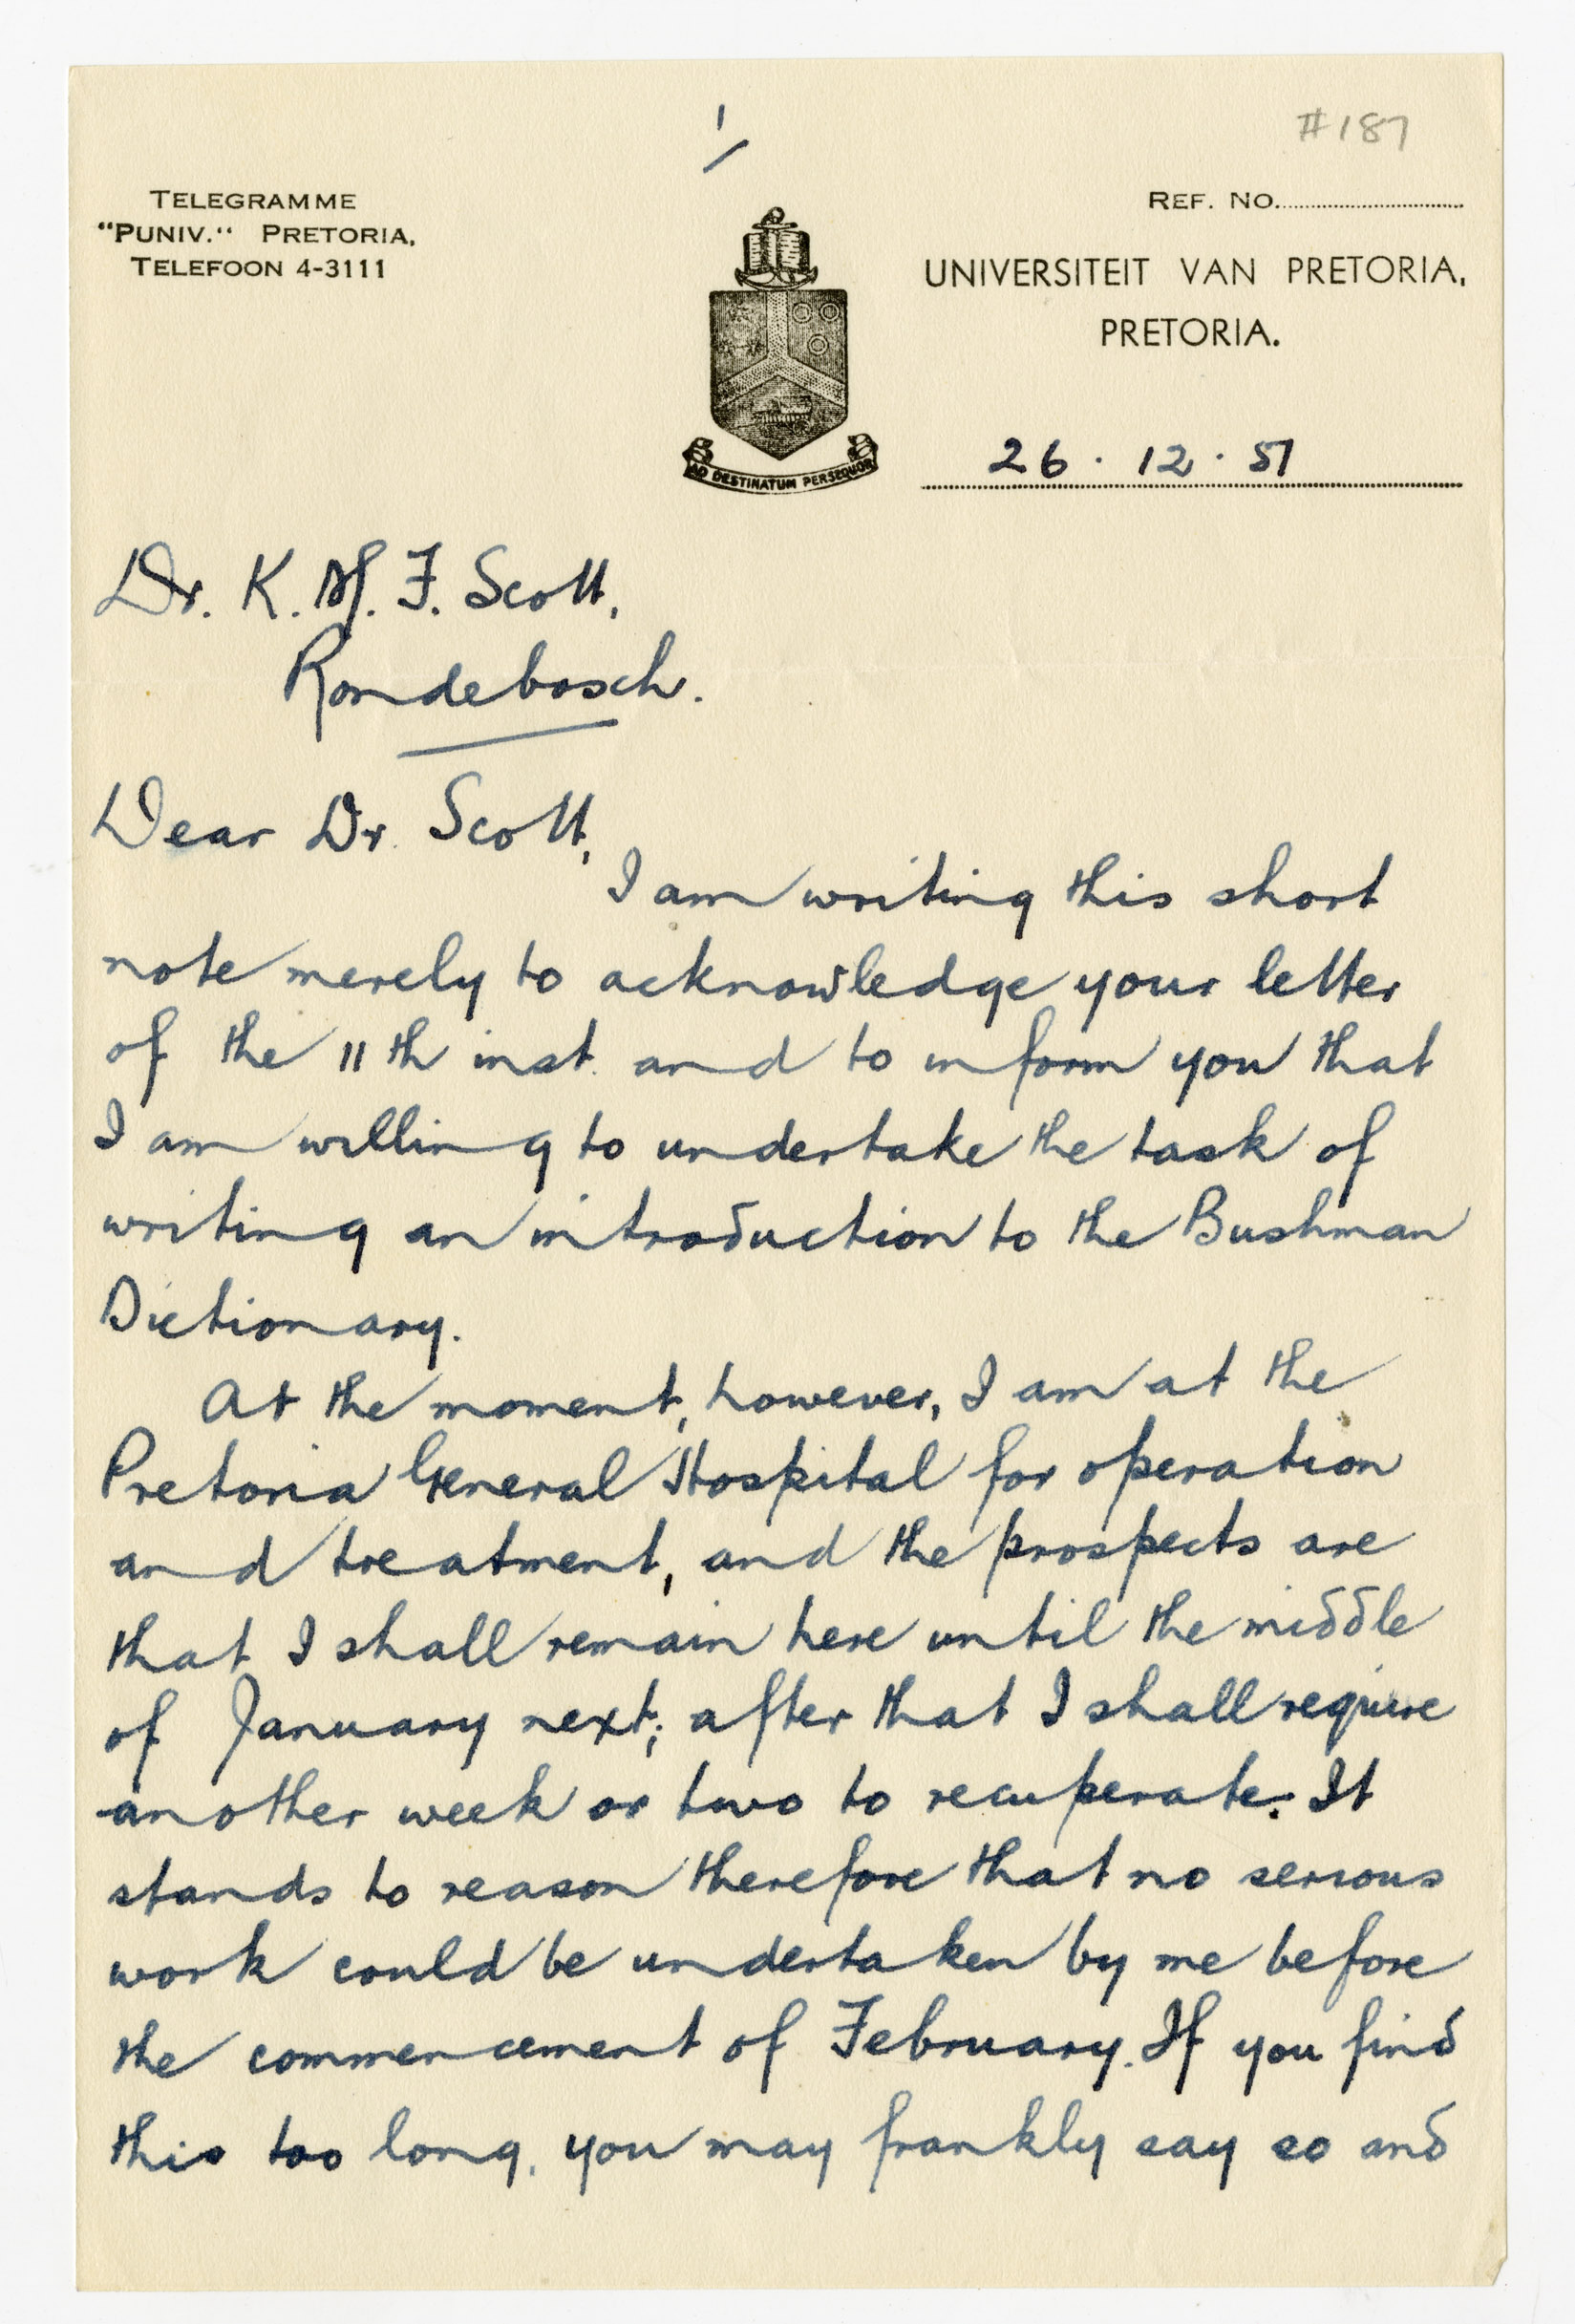 1/
#187
TELEGRAMME
"PUNIV." PRETORIA,
TELEFOON 4-3111
REF. NO..............................
UNIVERSITEIT VAN PRETORIA,
PRETORIA.
AD DESTINATUM PERSEQUOR
26 · 12 · 51
Dr. K. M. F. Scott,
Rondebosch.
Dear Dr. Scott,
I am writing this short
note merely to acknowledge your letter
of the 11th inst. and to inform you that
I am willing to undertake the task of
writing an introduction to the Bushman
Dictionary.
At the moment, however, I am at the
Pretoria General Hospital for operation
and treatment, and the prospects are
that I shall remain here until the middle
of January next; after that I shall require
another week or two to recuperate. It
stands to reason therefore that no serious
work could be undertaken by me before
the commencement of February. If you find
this too long, you may frankly say so and